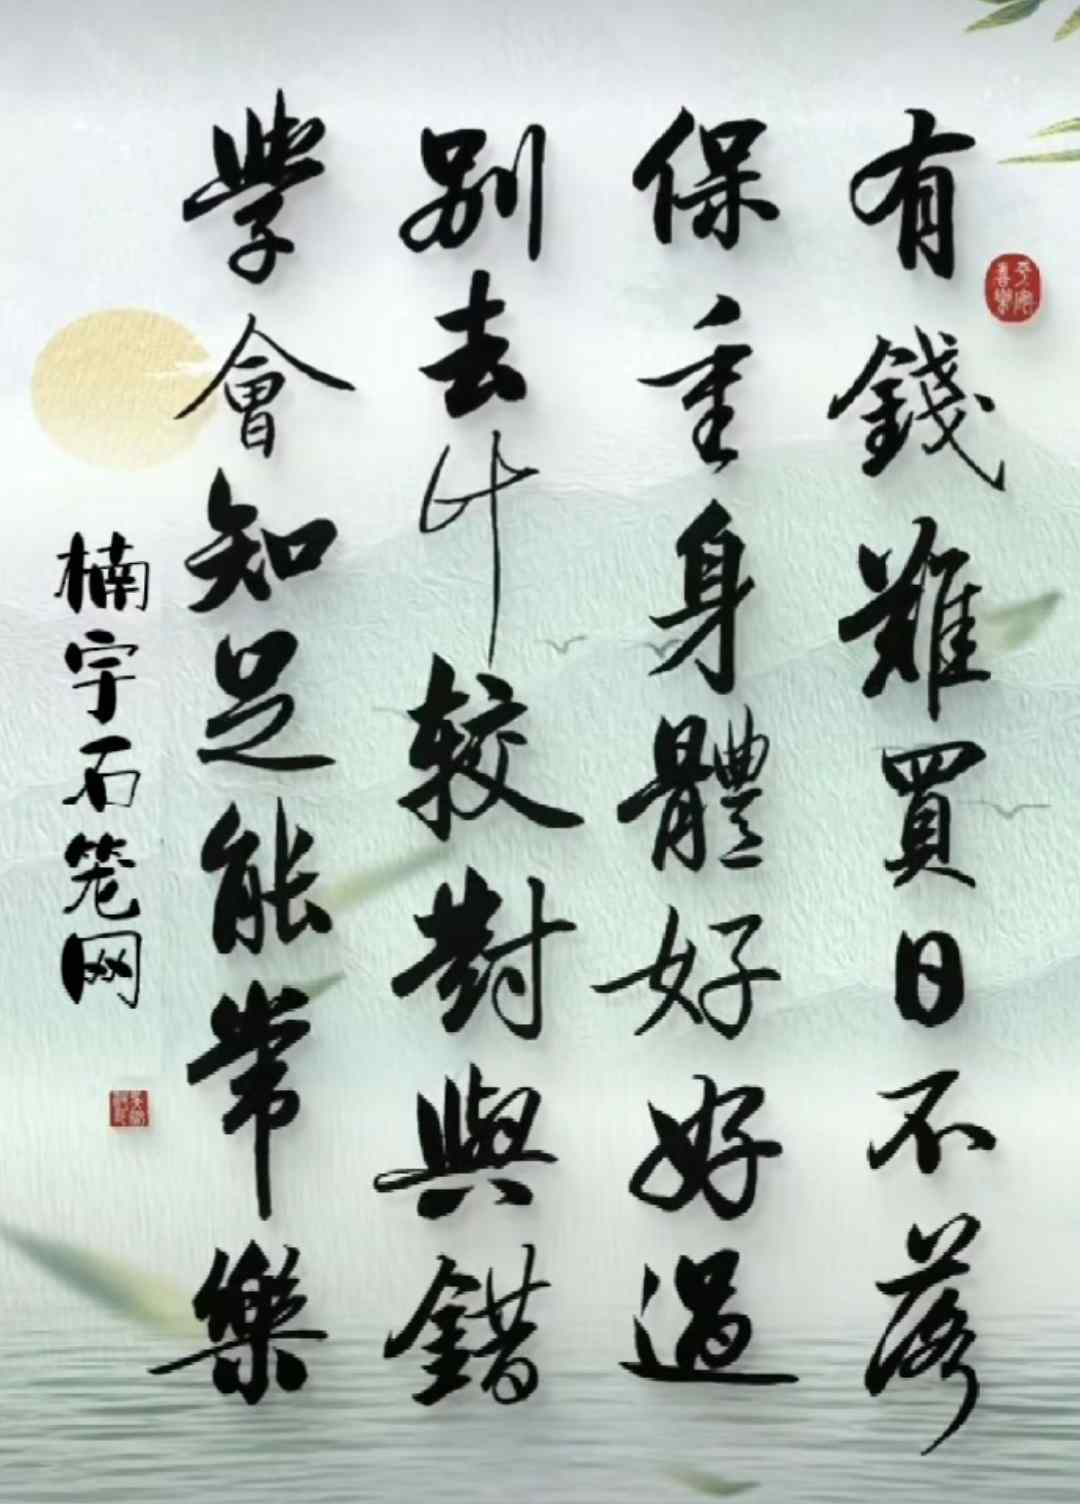 有錢難買日不落
保重身體好好過
别去计較對與錯
學會知足能常樂
楠宇石笼网
平安喜樂